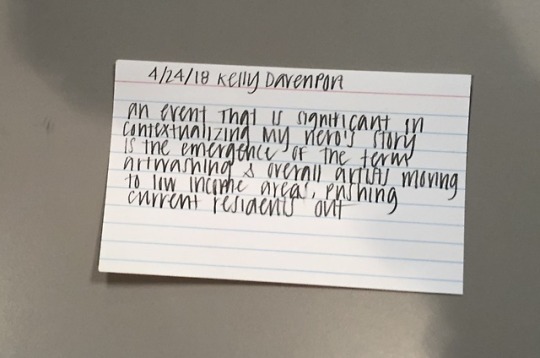 4/24/18 Kelly Davenport
an event that is significant in
contextualizing my hero's story
is the emergence of the term
artwashing & overall artists moving
to low income areas, pushing
current residents out